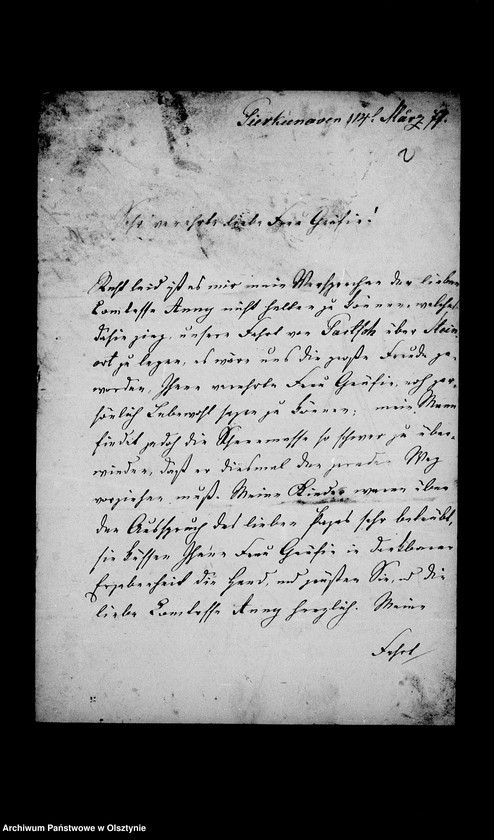 Pierkunowen 11t. März 77.
2
Sehr verehrte liebe Frau Gräfin!
Recht leid ist es mir mein Versprechen der lieben
Comtesse Anny nicht halten zu können, welches
dahin ging, unsere Fahrt von Partsch über Stein-
ort zu legen, es wäre uns die große Freude ge-
worden, Ihnen verehrte Frau Gräfin, noch per-
sönlich Lebewohl sagen zu können; mein Mann
findet jedoch die Schneemasse so schwer zu über-
winden, daß er diesmal den geraden Weg
vorziehen muß. Meine Kinder waren über
den Ausspruch des lieben Papas sehr betrübt,
sie küssen Ihnen Frau Gräfin in dankbarer
Ergebenheit die Hand, und grüßen Sie, u die
liebe Comtesse Anny herzlich. Meine
Fahrt
Archiwum Państwowe w Olsztynie